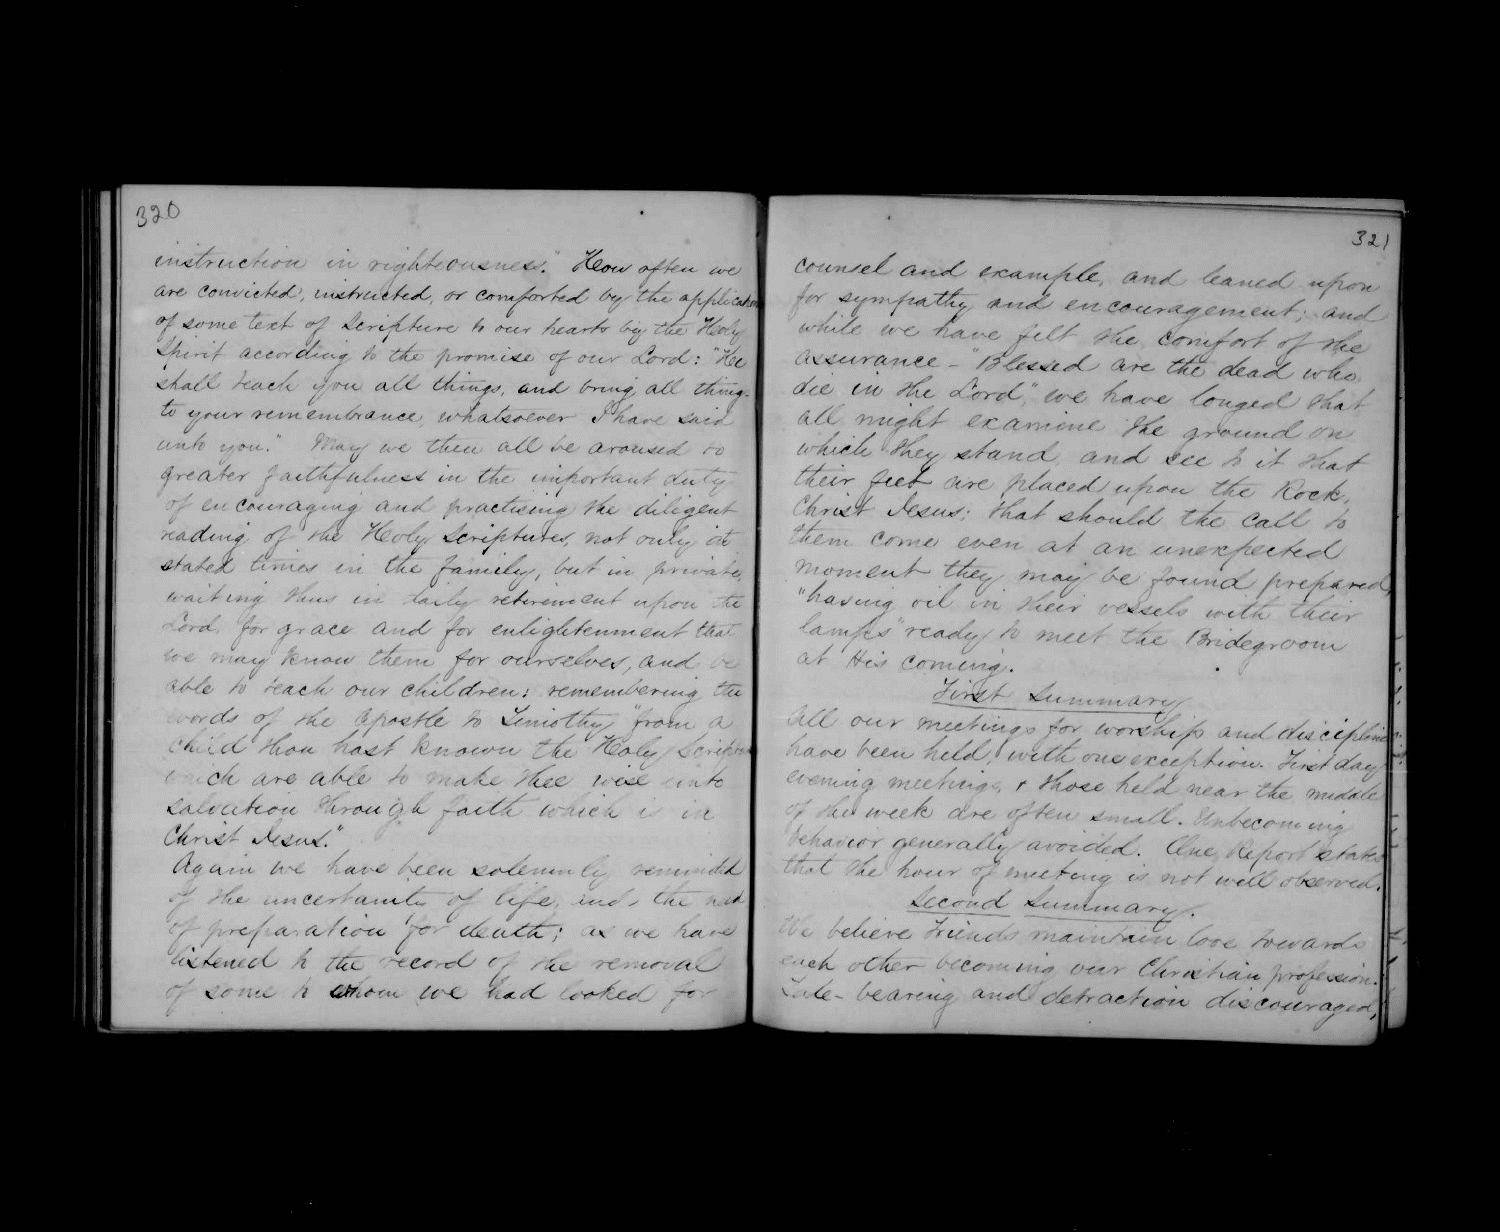 320
instruction in righteousness." How often we
are convicted, instructed, or comforted by the application
of some text of Scripture to our hearts by the Holy
Spirit according to the promise of our Lord: "He
shall teach you all things, and bring all things
to your remembrance, whatsoever I have said
unto you." May we then all be aroused to
greater faithfulness in the important duty
of encouraging and practising the diligent
reading of the Holy Scriptures, not only at
stated times in the family, but in private,
waiting thus in daily retirement upon the
Lord for grace and for enlightenment that
we may know them for ourselves, and be
able to teach our children: remembering the
words of the Apostle to Timothy "from a
child thou hast known the Holy Scriptures
which are able to make thee wise unto
salvation through faith which is in
Christ Jesus."
Again we have been solemnly reminded
of the uncertainty of life, and, the need
of preparation for death; as we have
listened to the record of the removal
of some to whom we had looked for
321
counsel and example, and leaned upon
for sympathy and encouragement; and
while we have felt the comfort of the
assurance - "Blessed are the dead who
die in the Lord," we have longed that
all might examine the ground on
which they stand, and see to it that
their feet are placed upon the Rock,
Christ Jesus; that should the call to
them come even at an unexpected
moment they may be found prepared,
"having oil in their vessels with their
lamps" ready to meet the Bridegroom
at His coming.
First Summary
All our meetings for worship and discipline
have been held, with one exception. First day
evening meetings, & those held near the middle
of the week are often small. Unbecoming
behavior generally avoided. One Report states
that the hour of meeting is not well observed.
Second Summary.
We believe Friends maintain love towards
each other becoming our Christian profession.
Tale-bearing and detraction discouraged,